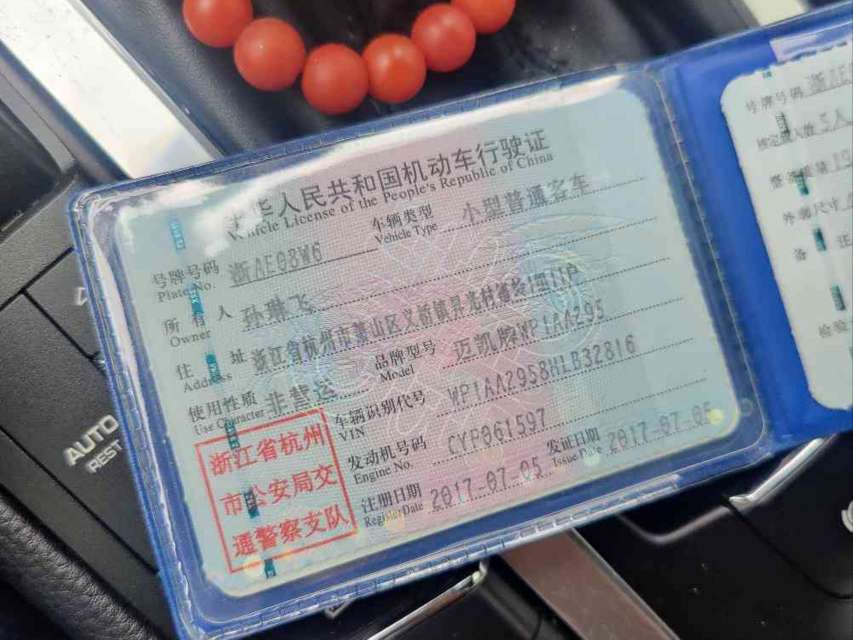 中华人民共和国机动车行驶证
Vehicle License of the People's Republic of China
号牌号码 浙AE08W6 车辆类型 小型普通客车
Plate No. Vehicle Type
所有人 孙琳飞
Owner
住址 浙江省杭州市萧山区义桥镇昇光村
Address
使用性质 非营运 品牌型号 迈凯牌WP1AA295
Use Character Model
车辆识别代号 WP1AA2958HLB32816
VIN
发动机号码 CYP061597
Engine No.
注册日期 2017-07-05 发证日期 2017-07-05
Register Date Issue Date
浙江省杭州
市公安局交
通警察支队
AUTO
REST
号牌号码 浙AE
5人
外廓尺寸
备注
检验